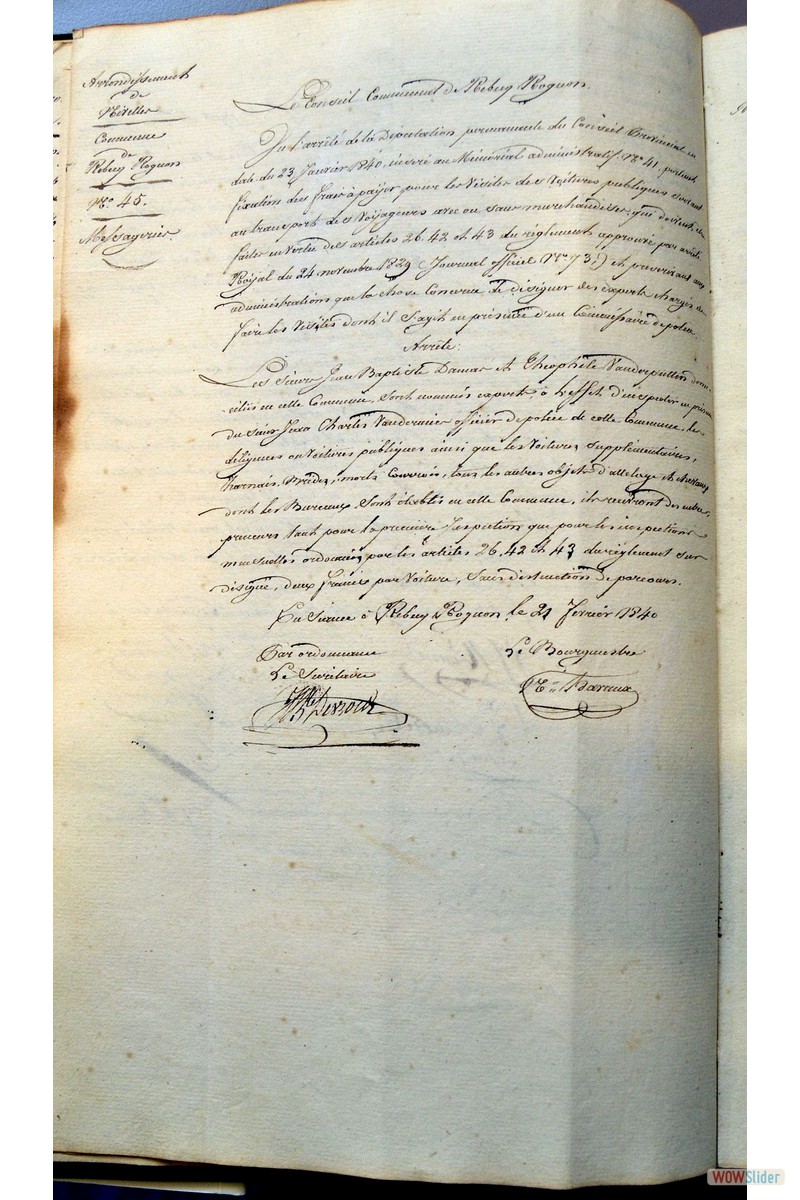 Arrondissement
de
Nivelles
Commune
de
Rebecq Rognon
No. 45.
Messageries.
Le Conseil Communal de Rebecq Rognon.
Vu l'arrêté de la Députation permanente du Conseil Provincial en
date du 23 Janvier 1840, inséré au Mémorial administratif No. 41, portant
fixation des frais à payer pour les Visites des Voitures publiques servant
au transport des Voyageurs avec ou sans marchandises, qui doivent être
faites en vertu des articles 26, 42 et 43 du règlement approuvé par arrêté
Royal du 24 novembre 1829 (Journal officiel No. 73) et prescrivant aux
administrations que la chose concerne de désigner des experts chargés de
faire les Visites dont il s'agit en présence d'un Commissaire de police.
Arrête:
Les Sieurs Jean Baptiste Damas et Théophile Vanderputten domi-
ciliés en cette Commune, sont nommés experts à l'effet d'inspecter en présence
du Sieur Charles officier de police de cette Commune, les
diligences ou Voitures publiques ainsi que les Voitures Supplémentaires,
Harnais, Brides, morts Courroies, tous les autres objets d'attelage et chevaux
dont les Bureaux sont établis en cette Commune, ils recevront des entre-
preneurs tant pour la première Inspection que pour les inspections
mensuelles ordonnées par les articles 26, 42 et 43 du règlement sus-
désigné, deux francs par Voiture, sans distinction de parcours.
En Séance à Rebecq Rognon le 21 Février 1840
Par ordonnance
Le Secrétaire
Le Bourguestre
WOWSlider